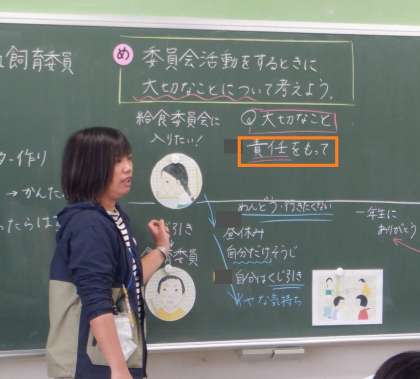 飼育委員
め 委員会活動をするときに
大切なことについて考えよう。
給食委員会に
入りたい！
大切なこと
責任をもって
作り
→かんた
ったらは
じ引き
委員
めんどう・行きたくない
昼休み
自分だけそうじ
自分はくじ引き
いやな気持ち
一年生に
ありがとう